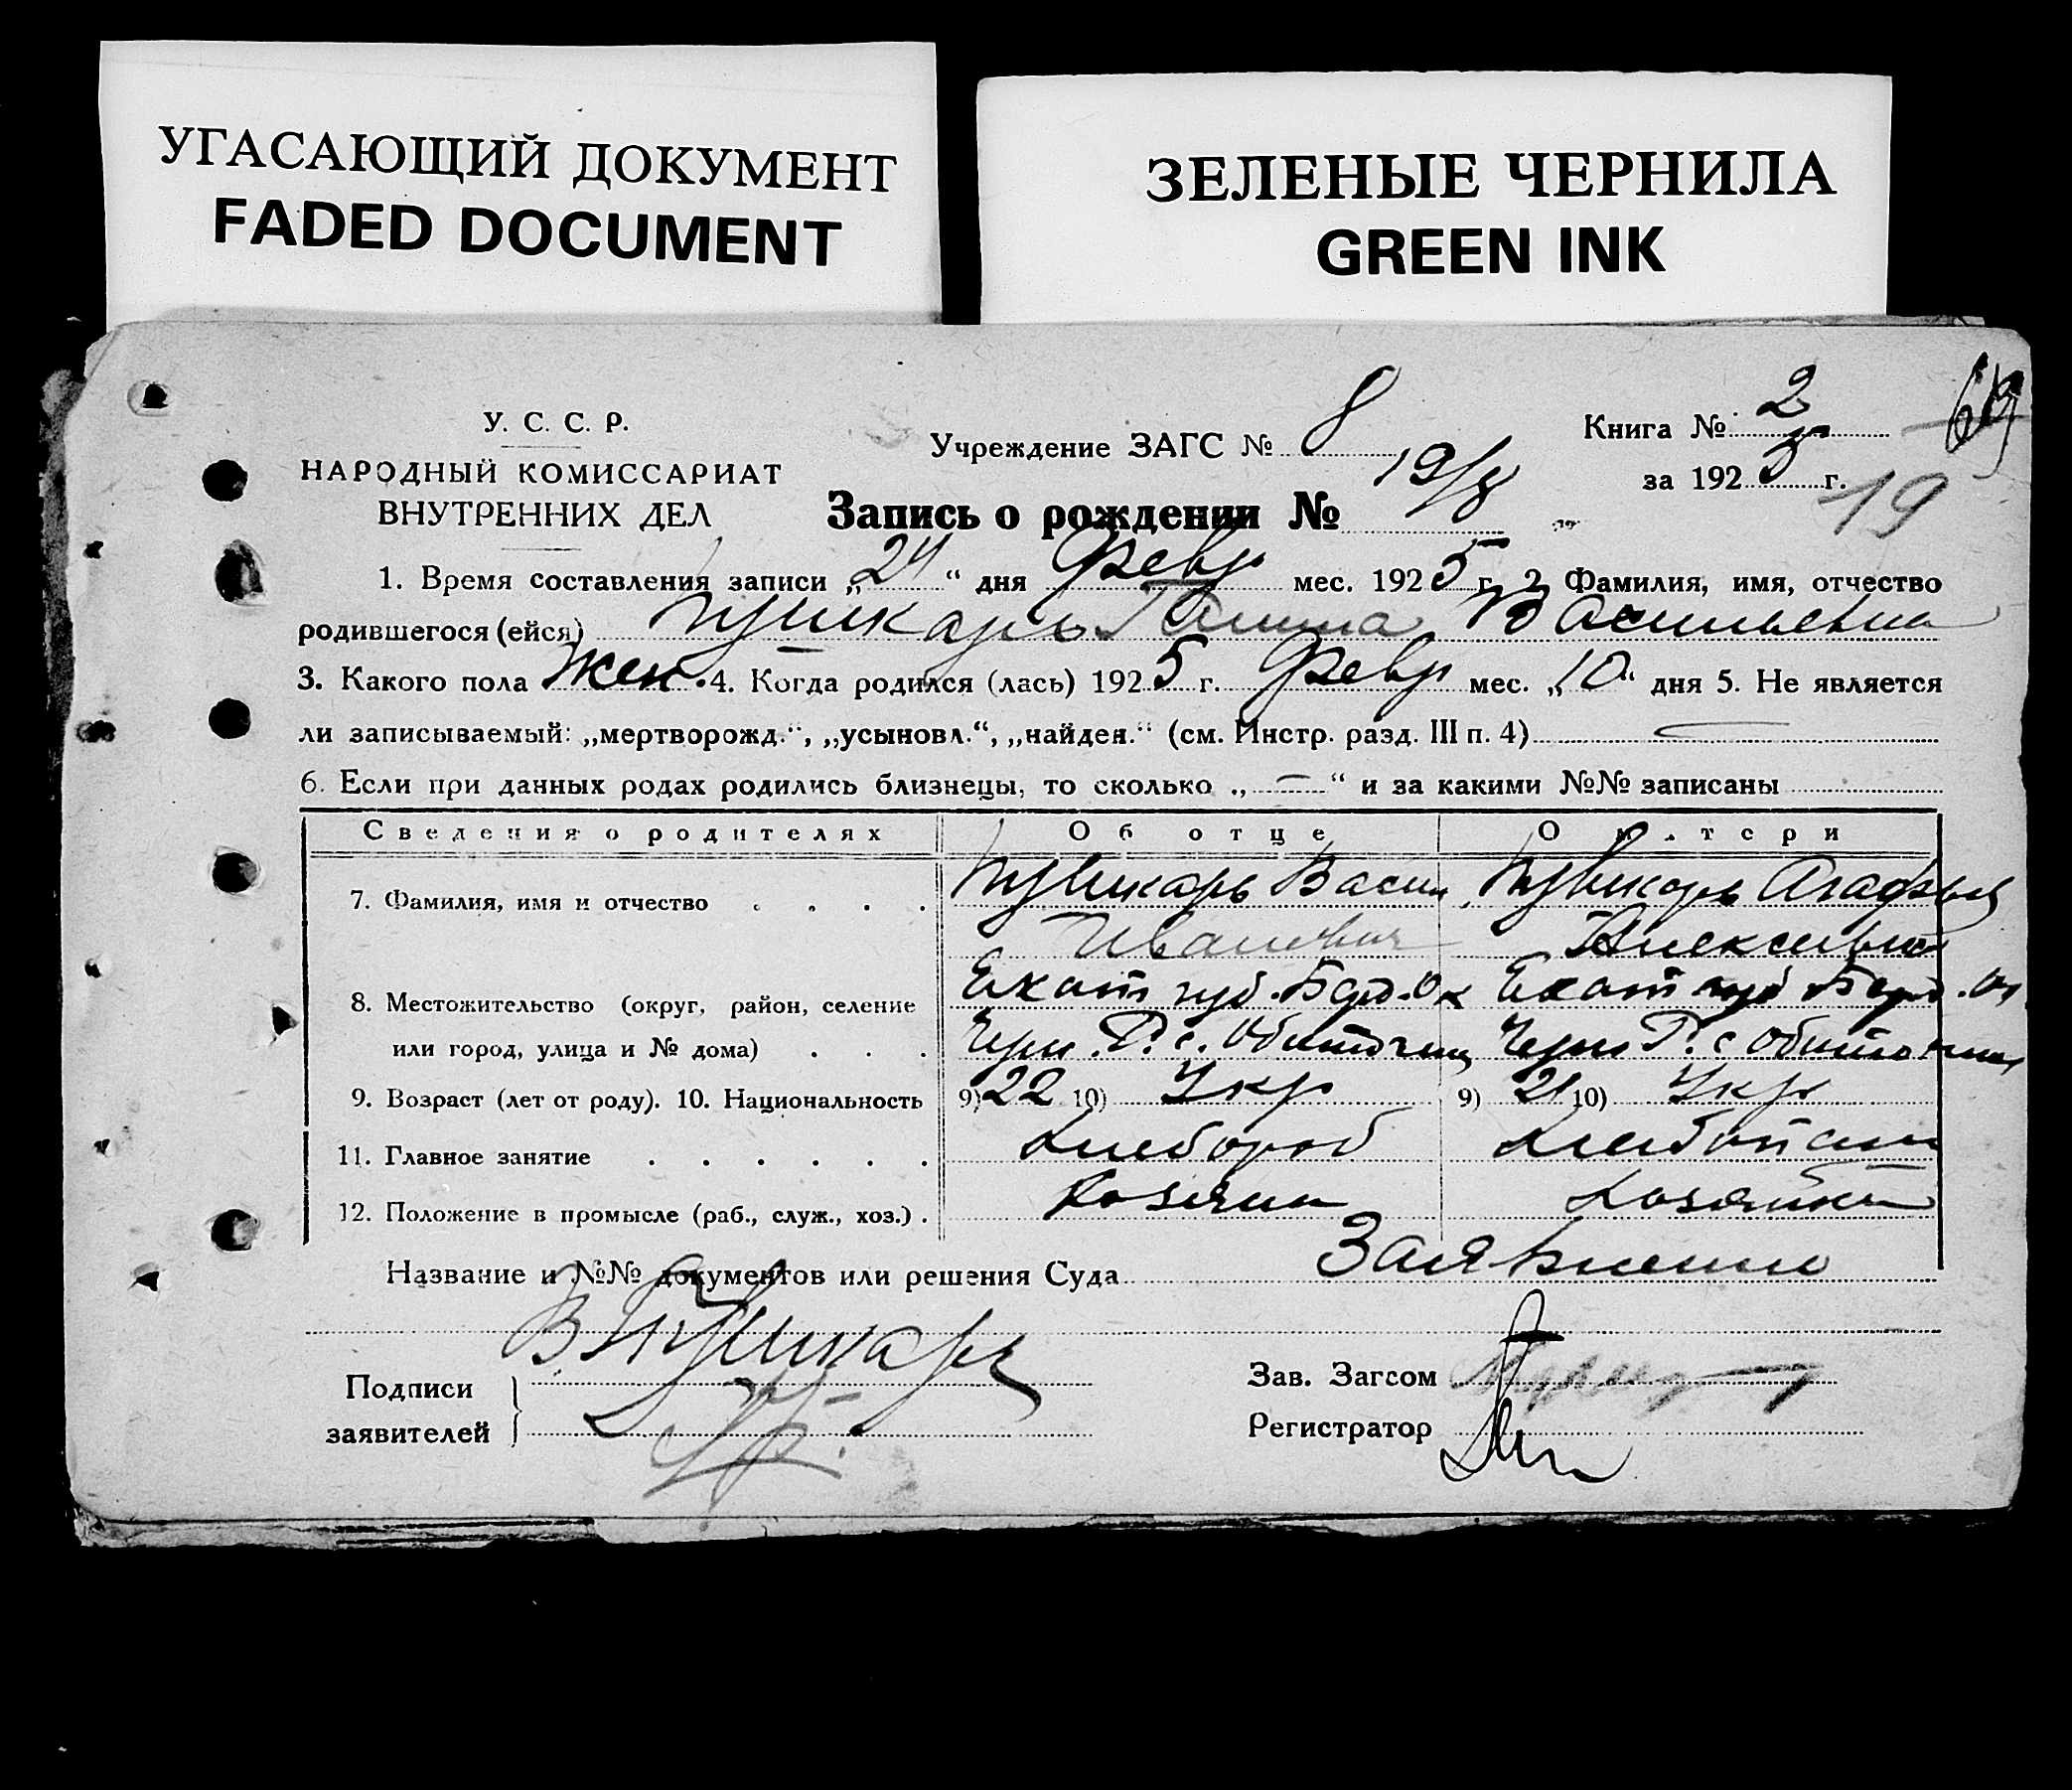 УГАСАЮЩИЙ ДОКУМЕНТ
FADED DOCUMENT
ЗЕЛЕНЫЕ ЧЕРНИЛА
GREEN INK
У. С. С. Р.
НАРОДНЫЙ КОМИССАРИАТ
ВНУТРЕННИХ ДЕЛ
Учреждение ЗАГС № 8
Книга № 2
за 1925 г.
19
Запись о рождении № 19/8
1. Время составления записи „24“ дня Февр мес. 1925 г. 2. Фамилия, имя, отчество
родившегося (ейся) Пушкарь Галина Васильевна
3. Какого пола Жен. 4. Когда родился (лась) 1925 г. Февр мес. „10“ дня 5. Не является
ли записываемый: „мертворожд.“, „усыновл.“, „найден.“ (см. Инстр. разд. III п. 4) —
6. Если при данных родах родились близнецы, то сколько „—“ и за какими №№ записаны
Сведения о родителях Об отце О матери
7. Фамилия, имя и отчество Пушкарь Васил Пушкарь Агафья
Иванович Алексеевна
8. Местожительство (округ, район, селение Екат губ. Берд. Ок Екат губ Берд. Ок
или город, улица и № дома) Черн. Р. с. Обиточная Черн Р. с Обиточная
9. Возраст (лет от роду). 10. Национальность 9) 22 10) Укр 9) 21 10) Укр
11. Главное занятие Хлебороб Хлебопаш
12. Положение в промысле (раб., служ., хоз.) . Хозяин Хозяйка
Название и №№ документов или решения Суда Заявление
В Пушкарь
Подписи
заявителей
Зав. Загсом
Регистратор